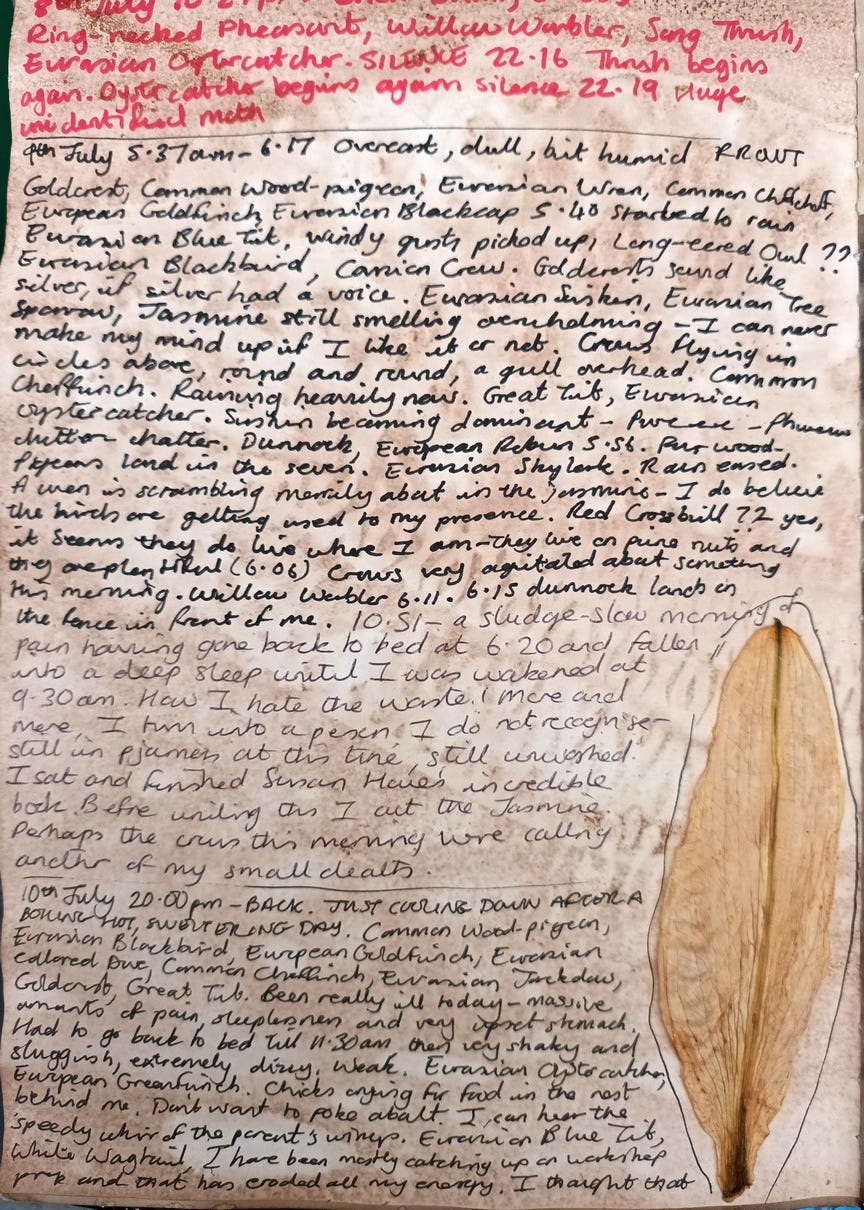 8th July
Ring-necked Pheasant, Willow Warbler, Song Thrush,
Eurasian Oystercatcher. SILENCE 22.16 Thrush begins
again. Oystercatcher begins again silence 22.19 Huge
unidentified moth
9th July 5.37am - 6.17 Overcast, dull, but humid FRONT
Goldcrest, Common Wood-pigeon, Eurasian Wren, Common Chiffchaff,
European Goldfinch, Eurasian Blackcap 5.40 started to rain
Eurasian Blue Tit, windy gusts picked up, Long-eared Owl ??
Eurasian Blackbird, Carrion Crow. Goldcrests sound like
silver, if silver had a voice. Eurasian Siskin, Eurasian Tree
Sparrow, Jasmine still smelling overwhelming - I can never
make my mind up if I like it or not. Crows flying in
circles above, round and round, a gull overhead. Common
Chaffinch. Raining heavily now. Great Tit, Eurasian
oystercatcher. Siskin becoming dominant -
chatter. Dunnock, European Robin 5.56. Four wood-
pigeons land in the. Eurasian Skylark. Rain eased.
A wren is scrambling merrily about in the jasmine - I do believe
the birds are getting used to my presence. Red Crossbill ?? yes,
it seems they do live where I am - they live on pine nuts and
they are plentiful (6.06) Crows very agitated about something
this morning. Willow Warbler 6.11. 6.15 dunnock lands on
the fence in front of me. 10.51 - a sludge-slow morning of
pain having gone back to bed at 6.20 and fallen
into a deep sleep until I was wakened at
9.30am. How I hate the waste! More and
more, I turn into a person I do not recognise -
still in pjamas at this time, still unwashed.
I sat and finished Susan incredible
book. Before writing this I cut the Jasmine.
Perhaps the crows this morning were calling
another of my small deaths.
10th July 20.00pm - BACK. JUST COOLING DOWN AFTER A
BOILING HOT, SWELTERING DAY. Common Wood-pigeon,
Eurasian Blackbird, European Goldfinch, Eurasian
Collared Dove, Common Chaffinch, Eurasian Jackdaw,
Goldcrest, Great Tit. Been really ill today - massive
amounts of pain, sleeplessness and very upset stomach.
Had to go back to bed till 11.30am then very shaky and
sluggish, extremely dizzy. Weak. Eurasian Oystercatcher,
European Greenfinch. Chicks crying for food in the nest
behind me. Don't want to poke about. I can hear the
speedy whirr of the parent's wings. Eurasian Blue Tit,
White Wagtail, I have been mostly catching up on workshop
prep and that has eroded all my energy. I thought that